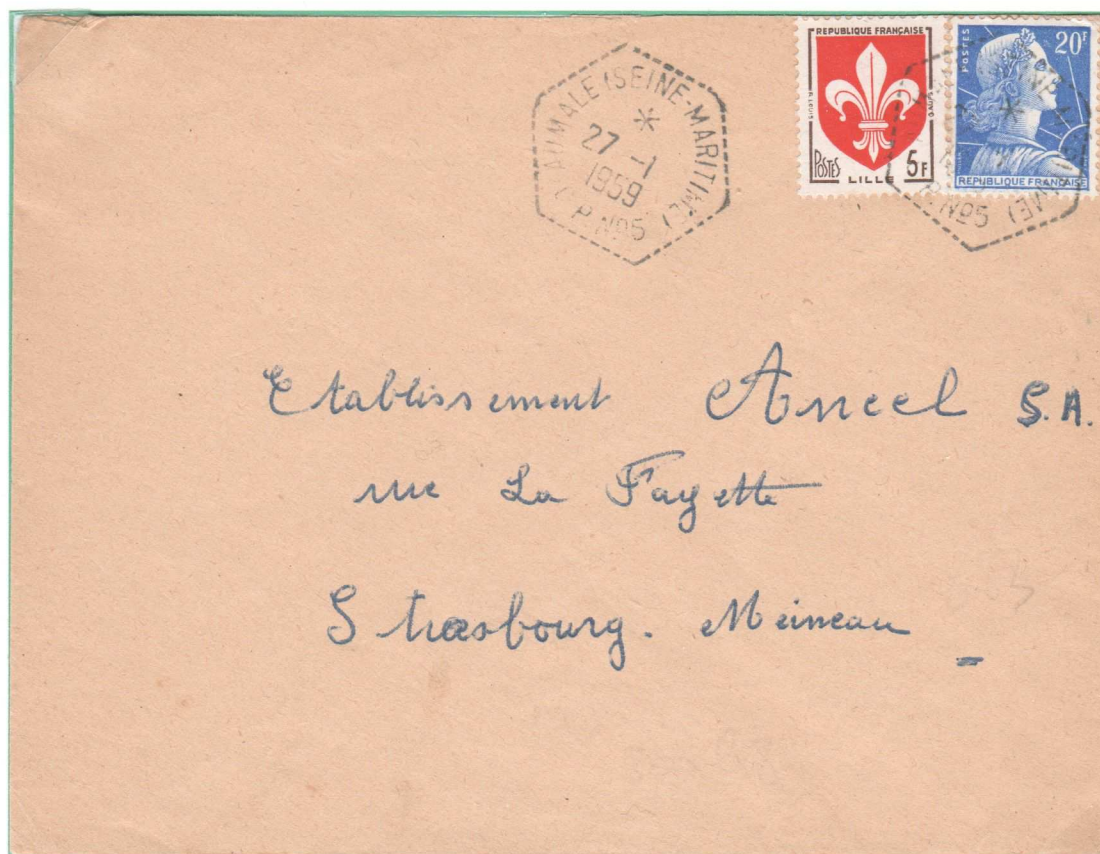 AUMALE (SEINE-MARITIME)
*
27 -1
1959
C.P. Nº5
REPUBLIQUE FRANÇAISE
POSTES LILLE 5F
POSTES 20F
REPUBLIQUE FRANÇAISE
*
Nº5
Etablissement Ancel S.A.
rue La Fayette
Strasbourg. Meineau